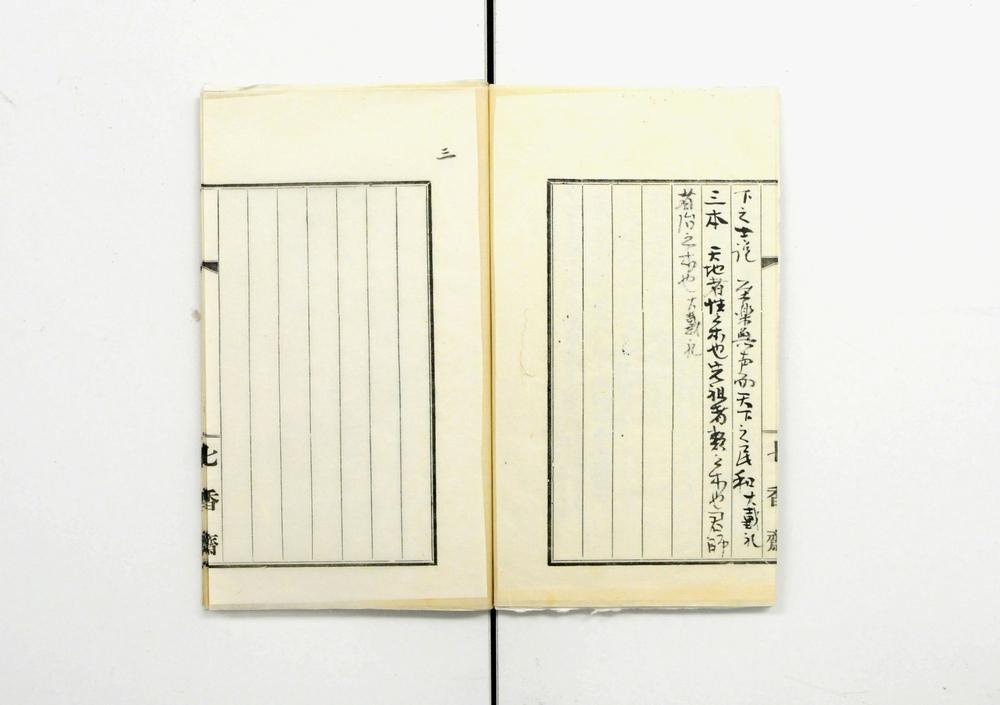 下之士説　至楽無声而天下之民和 大戴礼
三本　天地者性之本也先祖者類之本也君師
者治之本也 大戴礼
三
七香齋